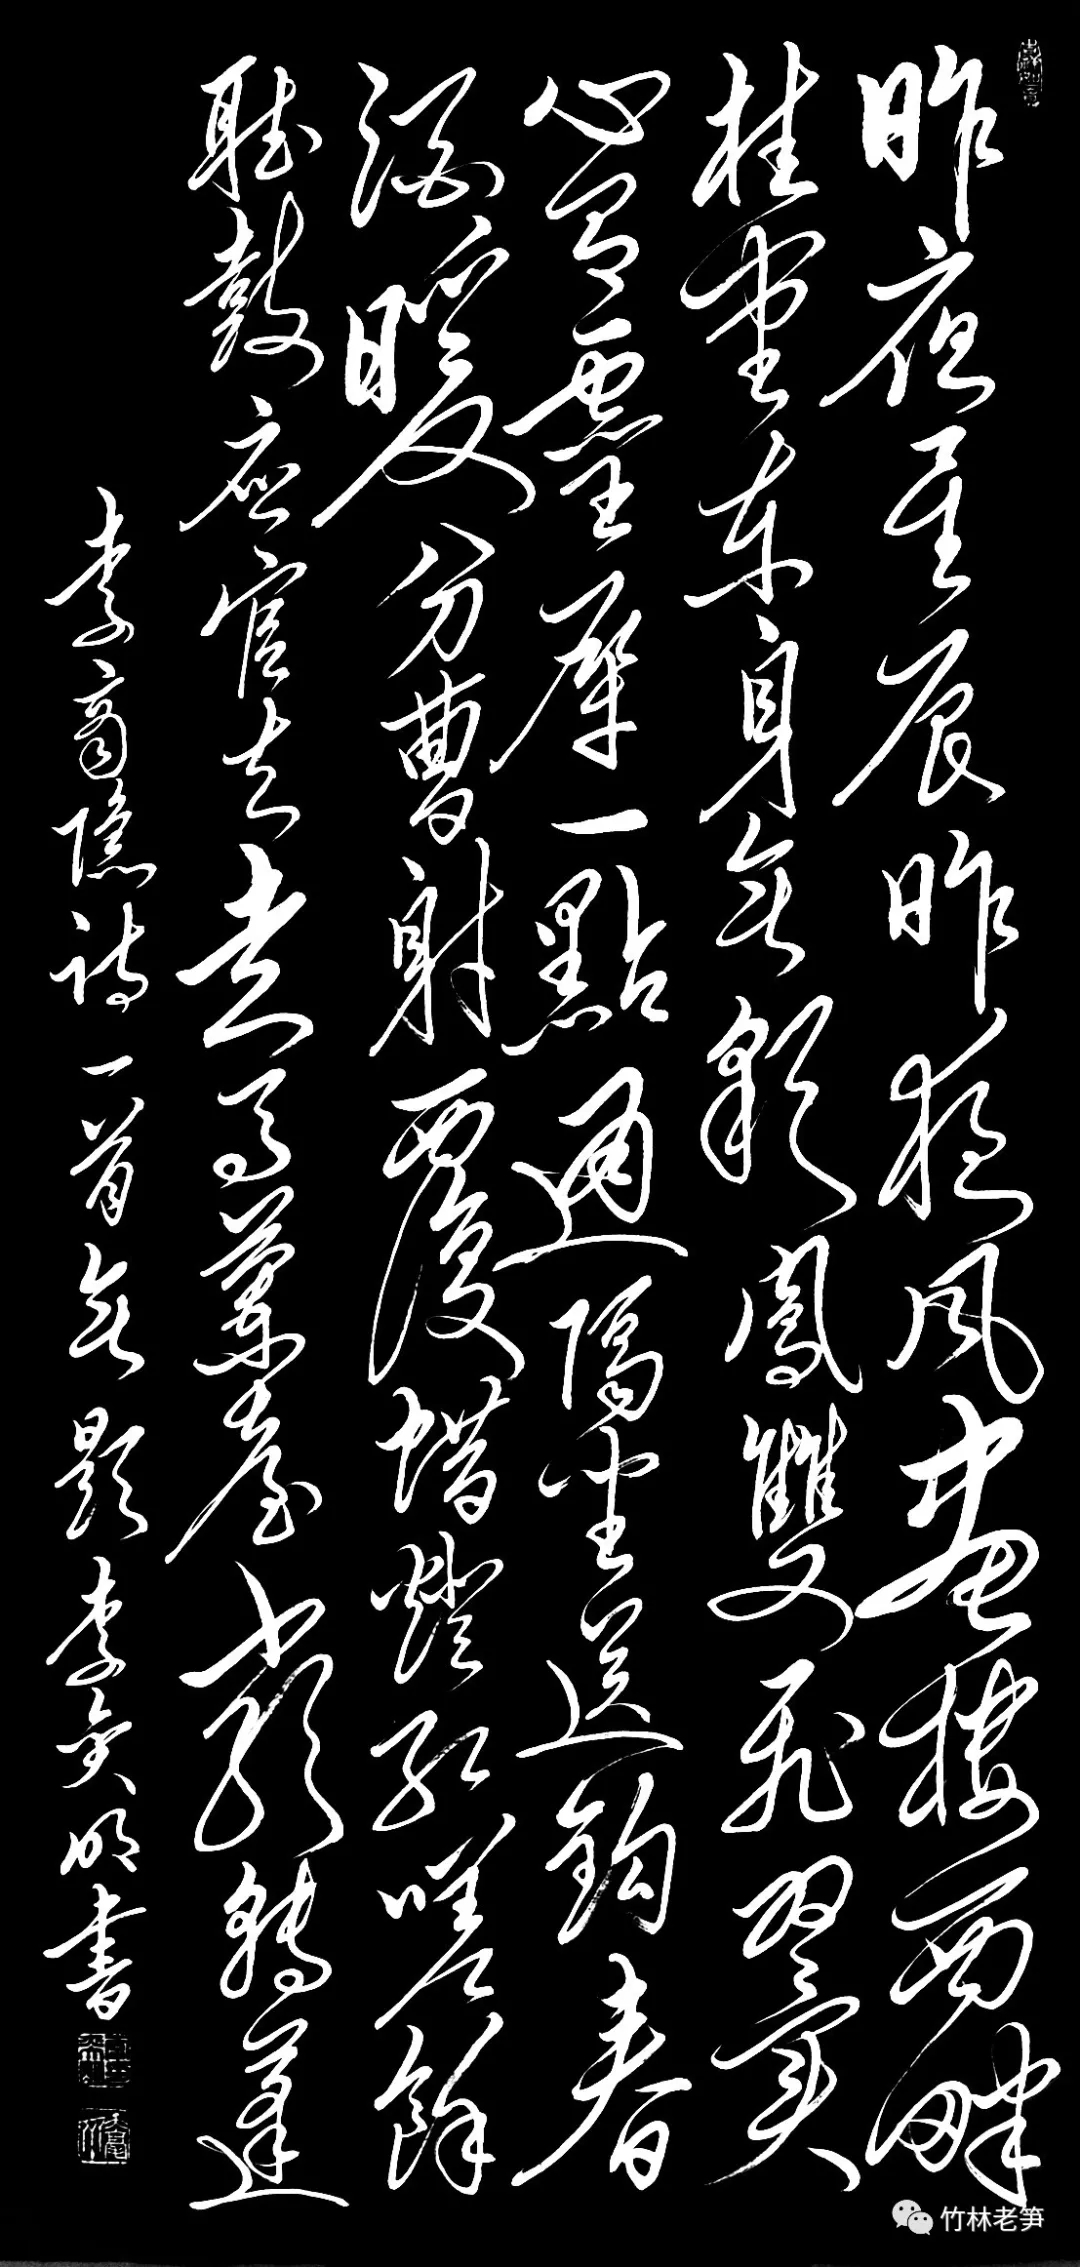 昨夜星辰昨夜风畫樓西畔
桂堂东身無彩鳳雙飛翼
心有靈犀一點通隔坐送鈎春
酒暖分曹射覆蜡燈紅嗟餘
聴鼓應官去走馬蘭臺類轉蓬
李商隱詩一首無題李明書
竹林老笋